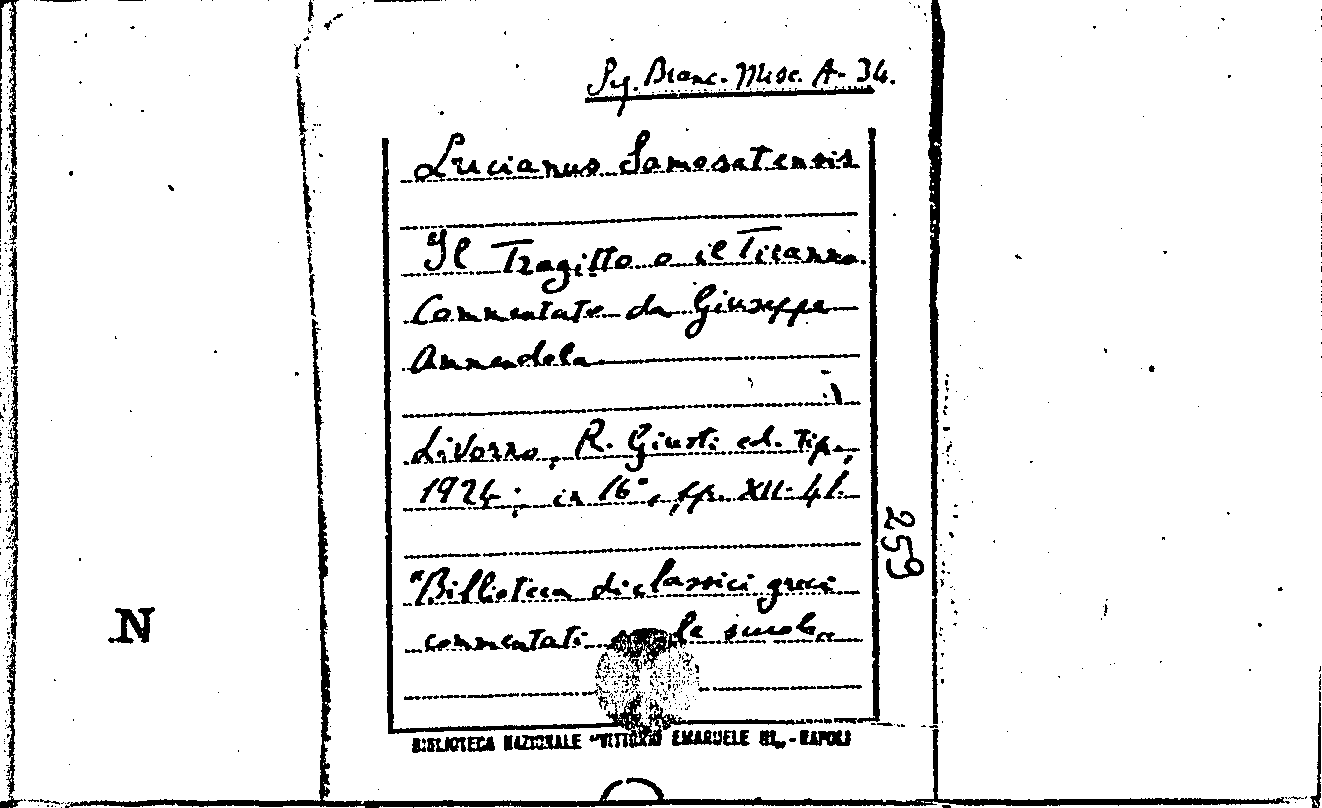 Sy. Branc. Misc. A-34.
Lucianus Samosatensis
Il Tragitto o il Tiranno.
Commentato da Giuseppe
Ammendola
Livorno, R. Giusti ed. tip.,
1924; in 16°, pp. XII-41.
"Biblioteca di classici greci
commentati le scuole"
259
N
BIBLIOTECA NAZIONALE "VITTORIO EMANUELE III" - NAPOLI